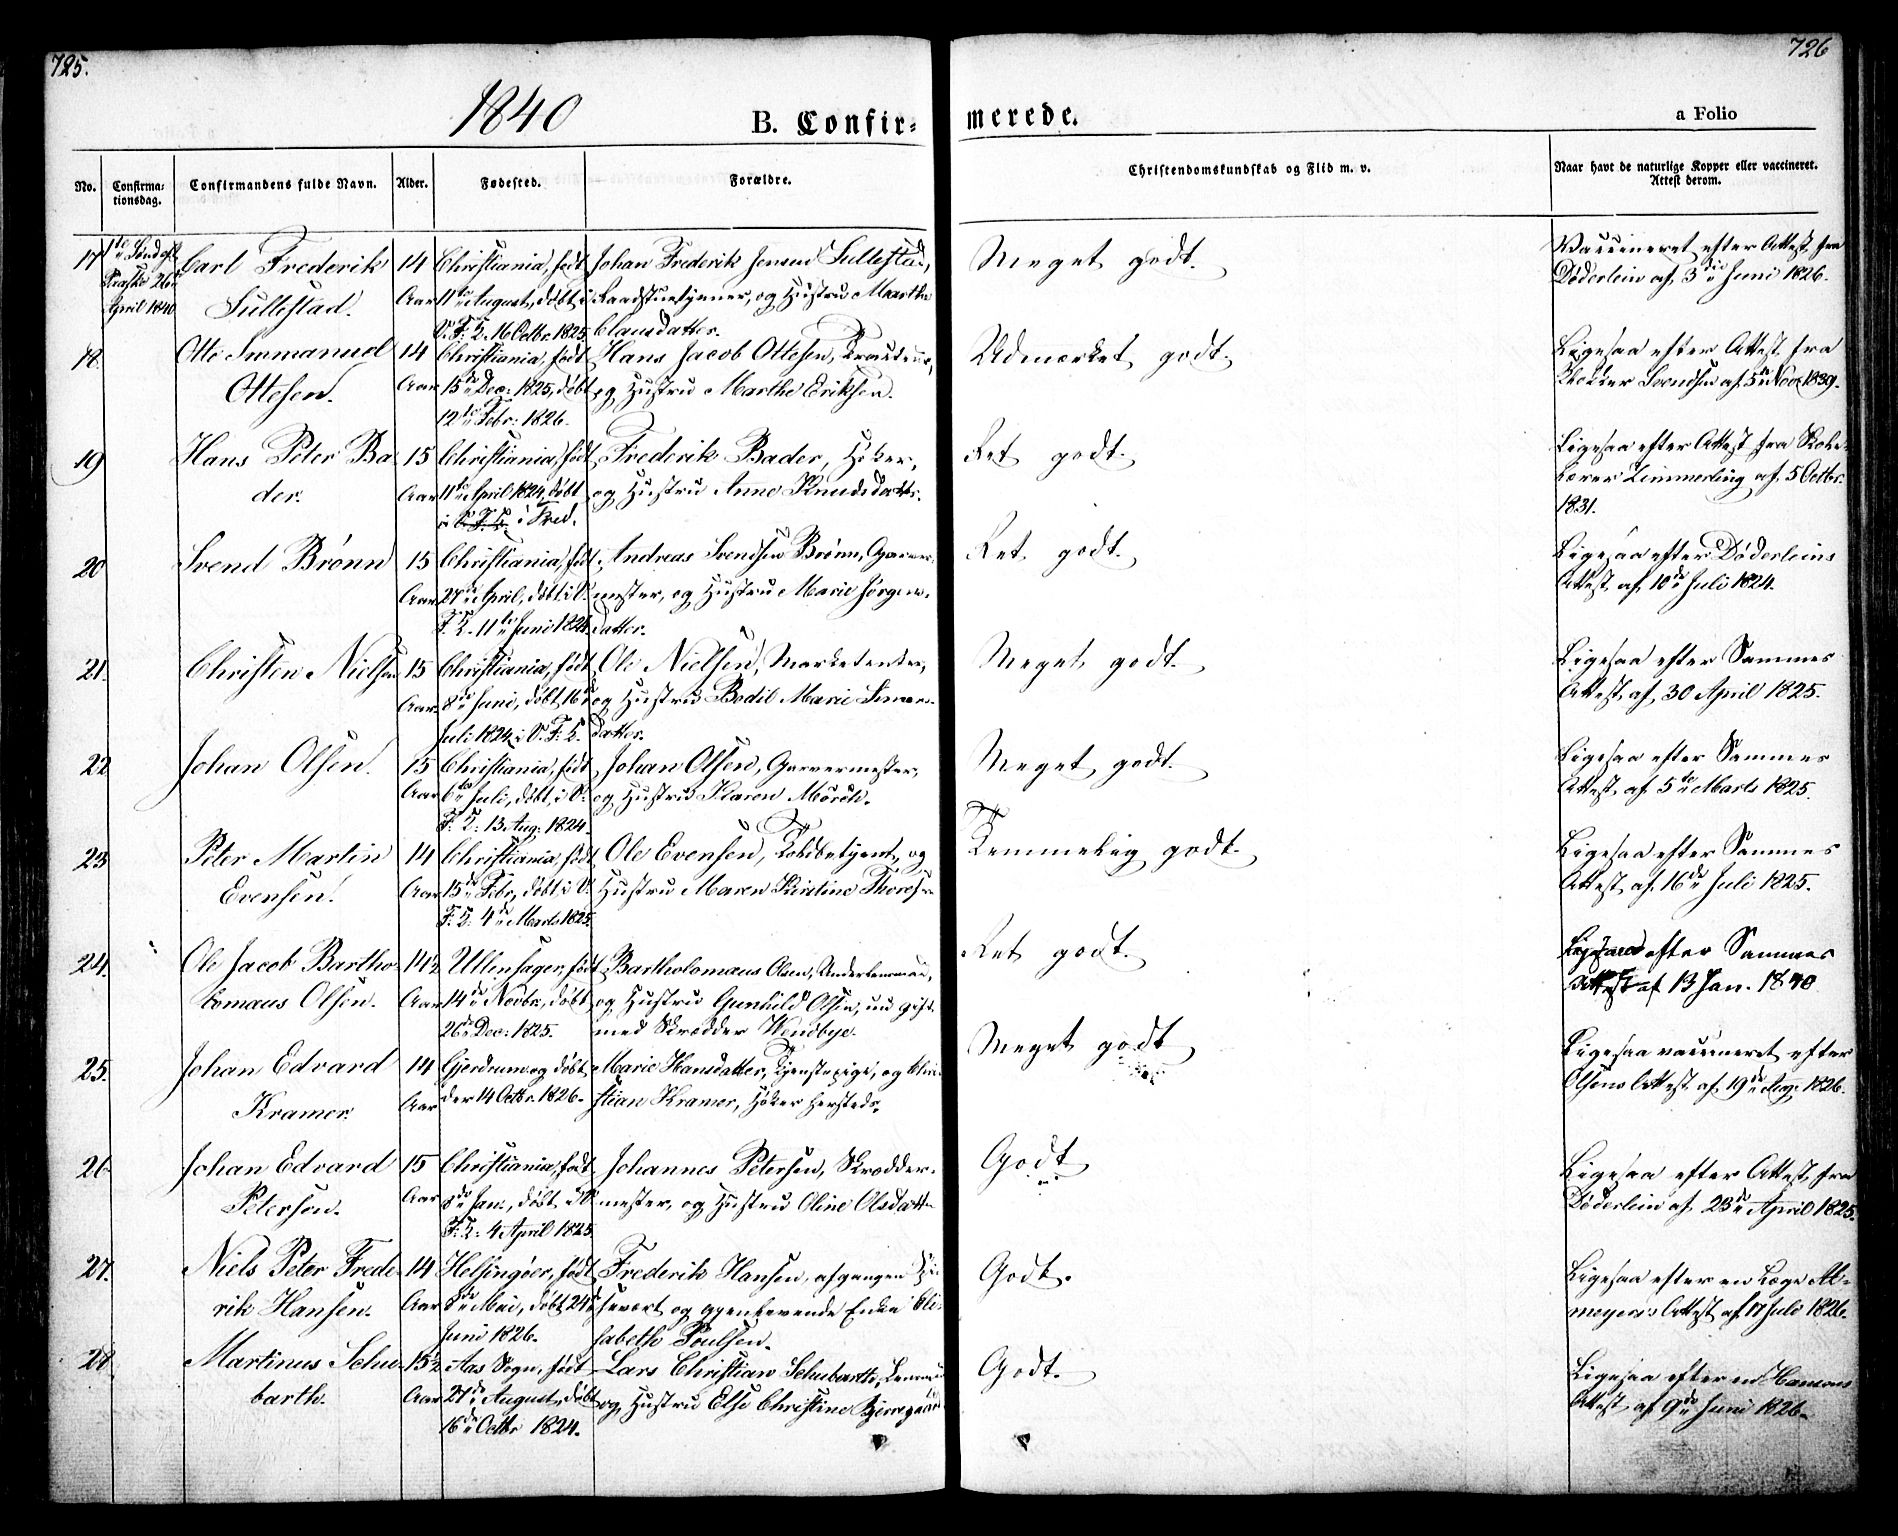 725.
726
1840
B. Confir-
merede.
a Folio
No.
Confirma-
tionsdag.
Confirmandens fulde Navn.
Alder.
Fødested.
Forældre.
Christendomskundskab og Flid m. v.
Naar havt de naturlige Kopper eller vaccineret.
Attest derom.
17
1te Sønd. eft.
Paaske 26de
April 1840
Carl Frederik
Sullestad.
14
Aar
Christiania, født
11te August, døbt i
V. F. K. 16 Octbr. 1825
Johan Frederik Jensen Sullestad,
Raadstuetjener, og Hustru Marthe
Clausdatter.
Meget godt.
Vaccineret efter Attest fra
Døderlein af 3die Juni 1826.
18.
Otto Immanuel
Ottesen.
14
Aar
Christiania, født
15de Dec: 1825, døbt
12te Febr: 1826.
Hans Jacob Ottesen,
og Hustru Marthe Eriksen.
Udmærket godt.
Ligesaa efter Attest fra
Klokker Svendsen af 5te Novr. 1839.
19
Hans Peter Ba-
der.
15
Aar
Christiania, født
11te April 1824, døbt
i V. F. K. i Fred.
Frederik Bader, Høker,
og Hustru Anne Knudsdatter.
Ret godt.
Ligesaa efter Attest fra Skole-
Lærer Limmerling af 5 Octbr.
1831.
20
Svend Brønn
15
Aar
Christiania, født
27de April, døbt i V.
F. K. 11te Juni 1824.
Andreas Svendsen Brønn, Garver-
mester, og Hustru Marie Jørgens-
datter.
Ret godt.
Ligesaa efter Døderleins
Attest af 10de Juli 1824.
21.
Christen Nielsen
15
Aar
Christiania, født
8de Juni, døbt 16de
Juli 1824 i V. F. K.
Ole Nielsen, Marketenter,
og Hustru Bodil Marie Simens-
datter.
Meget godt.
Ligesaa efter Sammes
Attest af 30 April 1825.
22
Johan Olsen.
15
Aar
Christiania, født
6te Juli, døbt i V.
F. K. 13 Aug: 1824.
Johan Olsen, Garvermester,
og Hustru Karen Mørch.
Meget godt.
Ligesaa efter Sammes
Attest af 5te Marts 1825.
23
Peter Martin
Evensen.
14
Aar
Christiania, født
15de Febr, døbt i V.
F. K. 4de Marts 1825.
Ole Evensen, Toldbetjent, og
Hustru Maren Kirstine Thoresen
Temmelig godt.
Ligesaa efter Sammes
Attest af 16de Juli 1825.
24.
Ole Jacob Bartho-
lomæus Olsen.
14½
Aar
Ullensager, født
14de Novbr, døbt
26de Dec: 1825.
Bartholomæus Olsen, Underlensmand,
og Hustru Gunhild Olsen, nu gift
med Skrædder Wendbye.
Ret godt.
Ligesaa efter Sammes
Attest af 13 Jan. 1840
25.
Johan Edvard
Kramer.
14
Aar
Gjerdrum og døbt
der 14 Octbr. 1826.
Marie Hansdatter, Tjenestepige, og Chri-
stian Kramer, Høker hersteds.
Meget godt
Ligesaa vaccineret efter
Olsens Attest af 19de Aug. 1826.
26
Johan Edvard
Petersen.
15
Aar
Christiania, født
8de Jan., døbt i V.
F. K. 4 April 1825.
Johannes Petersen, Skrædder-
mester, og Hustru Oline Olsdatter
Godt
Ligesaa efter Attest fra
Døderlein af 23de April 1825.
27.
Niels Peter Frede-
rik Hansen.
14
Aar
Helsingøer, født
8de Mai, døbt 24de
Juni 1826.
Frederik Hansen, afgangen
og gjenlevende Enke Eli-
sabeth Poulsen.
Godt.
Ligesaa efter en Læge Al-
meyers Attest af 17 Juli 1826.
28
Martinus Schu-
barth.
15½
Aar
Aas Sogn, født
27de August, døbt
16de Octbr 1824.
Lars Christian Schubarth,
og Hustru Else Christine Bjerregaard
Godt.
Ligesaa efter en Hansens
Attest af 9de Juni 1826.